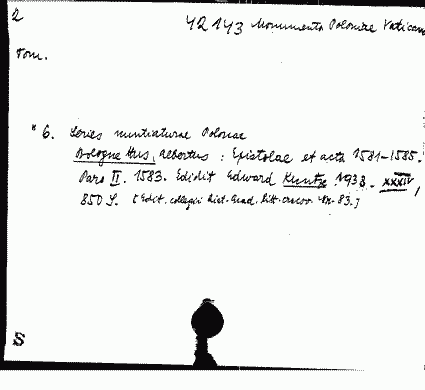 2
42143 Monumenta Poloniae Vaticana
Tom.
" 6. Series nuntiaturae Polonae
Bolognettus, Albertus : Epistolae et acta 1581-1585.
Pars II. 1583. Edidit Edward Kuntze 1938. - XXXIV,
850 S. [Edit. collegii hist. Acad. litt. cracov. Nr. 83.]
S